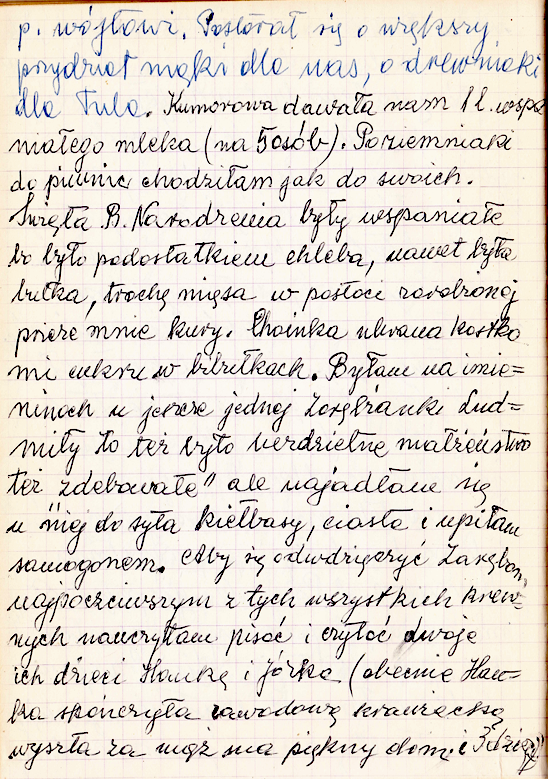 p. wójtowi. Postarał się o większy
przydział mąki dla nas, o drewniaki
dla Tula. Kumorowa dawała nam 1 l. wspa
niałego mleka (na 5 osób). Po ziemniaki
do piwnic chodziłam jak do swoich.
Święta B. Narodzenia były wspaniałe
bo było podostatkiem chleba, nawet była
bułka, trochę mięsa w postaci zarobionej
przeze mnie kury. Choinka ubrana kostka
mi cukru w bibułkach. Byłam na imie=
ninach u jeszcze jednej Zarębianki Lud=
miły to też było bezdzietne małżeństwo
też zdebowałe" ale najadłam się
u niej do syta kiełbasy, ciasta i upiłam
samogonem. Aby się odwdzięczyć Zarębom,
najpoczciwszym z tych wszystkich krew=
nych nauczyłam pisać i czytać dwoje
ich dzieci Hankę i Jórka (obecnie Han=
ka skończyła zawodową krawiecką
wyszła za mąż ma piękny dom i 3 dzieci"